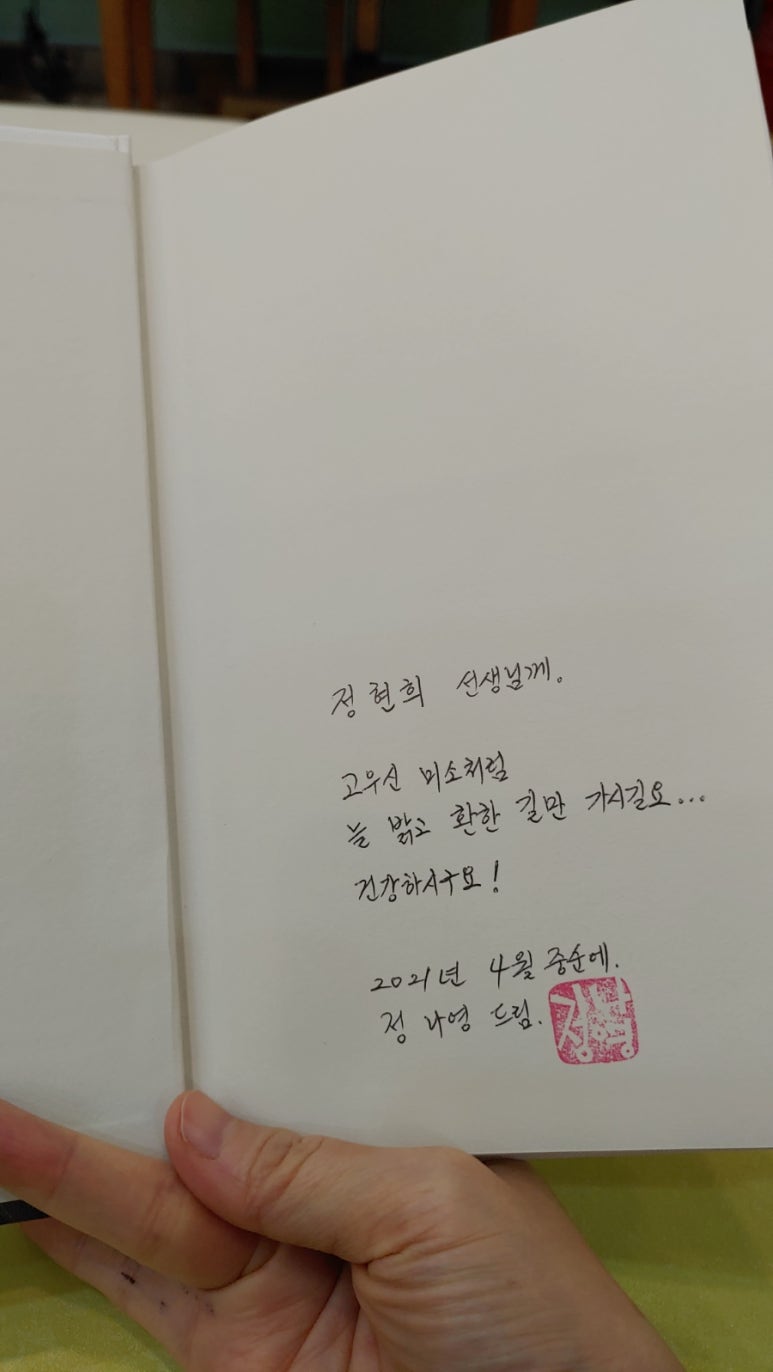 정현희 선생님께.
고우신 미소처럼
늘 밝고 환한 길만 가시길요...
건강하시구요!
2021년 4월 중순에.
정 나영 드림.